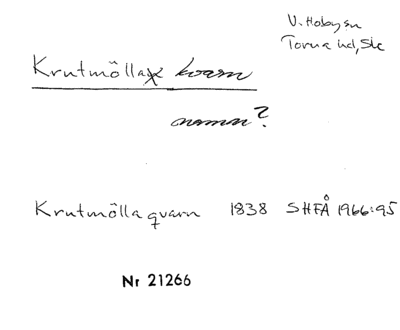 V. Hoby sn
Torna hd, Sk
Krutmölla kvarn
namn?
Krutmölla qvarn 1838 SHFÅ 1966:95
Nr 21266